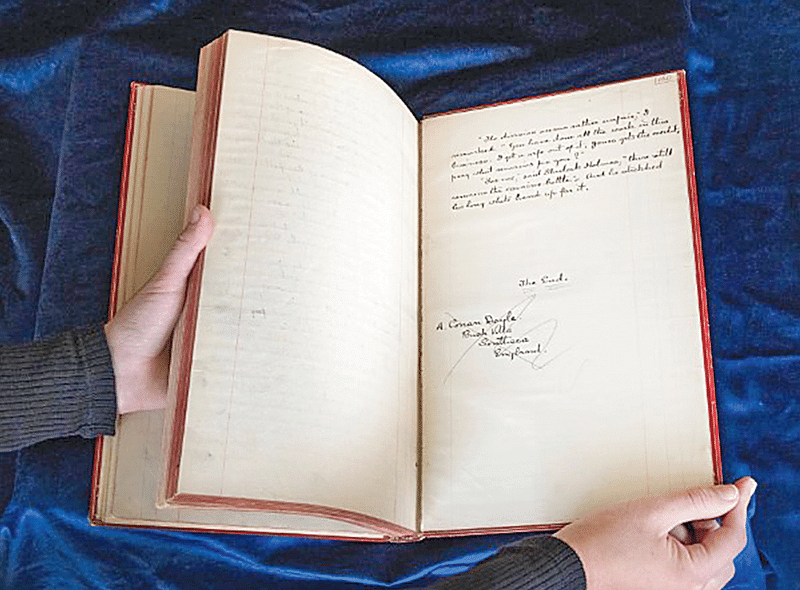 "The division seems rather unfair," I
remarked. "You have done all the work in this
business. I get a wife out of it, Jones gets the credit,
pray what remains for you?"
"For me," said Sherlock Holmes, "there still
remains the cocaine bottle". And he stretched
his long white hand up for it.
The End.
A. Conan Doyle.
Bush Villa
Southsea
England.